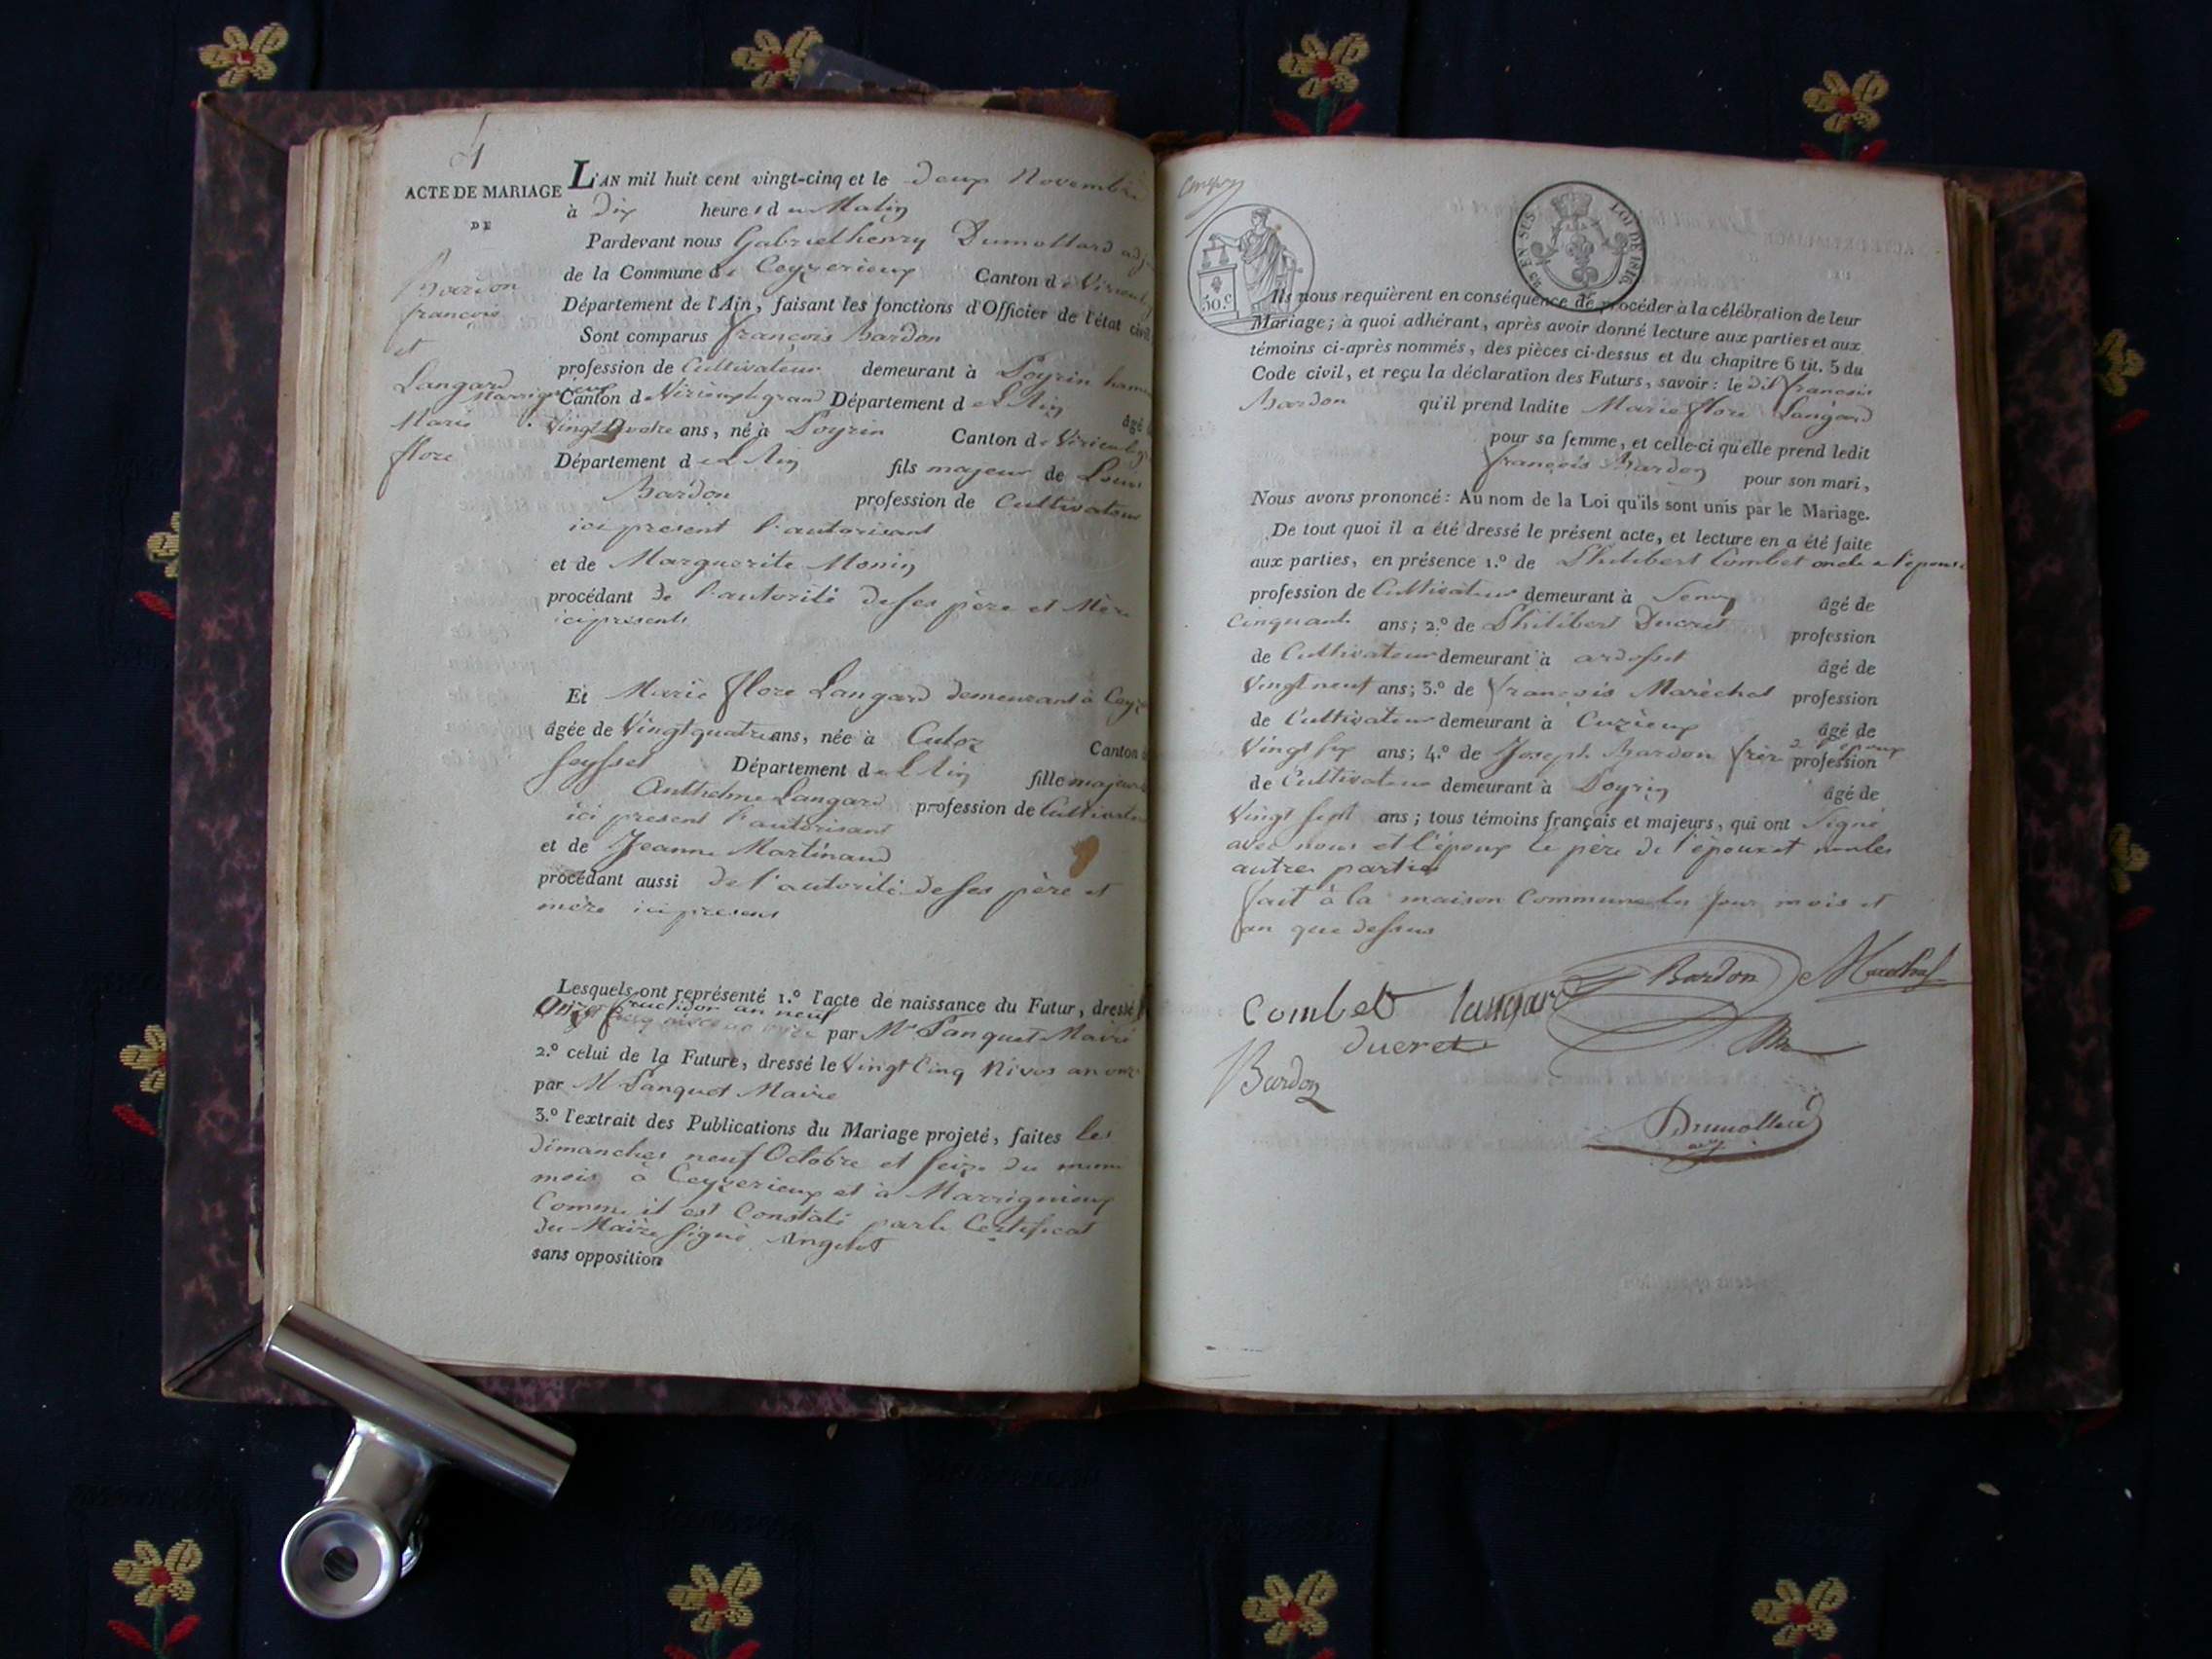 4
ACTE DE MARIAGE
DE
Bardon
françois
et
Langard
Marie
flore
L'AN mil huit cent vingt-cinq et le deux Novembre
à Dix heures du Matin
Pardevant nous Gabriel henry Dumollard adj
de la Commune de Ceyzerieux Canton de Virieu
Département de l'Ain, faisant les fonctions d'Officier de l'état civil
Sont comparus françois Bardon
profession de Cultivateur demeurant à Poyrin hameau
Marrignieux
Canton de Virieux le grand Département de L'Ain âgé
Vingt quatre ans, né à Poyrin Canton de Virieu
Département de L'Ain fils majeur de Louis
Bardon profession de Cultivateur
ici present l'autorisant
et de Marguerite Monin
procédant de l'autorité de ses père et Mère
ici présents
Et Marie flore Langard demeurant à Ceyz
âgée de Vingt quatre ans, née à Culoz Canton
Seyssel Département de L'Ain fille majeure
Anthelme Langard profession de Cultivateur
ici present l'autorisant
et de Jeanne Martinaud
procédant aussi de l'autorité de ses père et
mère ici presens
Lesquels ont représenté 1.º l'acte de naissance du Futur, dressé
Onze fructidor an neuf
par Mr Panquet Maire
2.º celui de la Future, dressé le Vingt Cinq Nivos an onze
par M Panquet Maire
3.º l'extrait des Publications du Mariage projeté, faites les
dimanches neuf Octobre et seize du meme
mois à Ceyzerieux et à Marrignieux
Comme il est Constaté par le Certificat
du Maire signé Angelot
sans opposition
50 C
EN SUS. LOI DE 1816.
Ils nous requièrent en conséquence de procéder à la célébration de leur
Mariage; à quoi adhérant, après avoir donné lecture aux parties et aux
témoins ci-après nommés, des pièces ci-dessus et du chapitre 6 tit. 5 du
Code civil, et reçu la déclaration des Futurs, savoir: le dit francois
Bardon qu'il prend ladite Marie flore Langard
pour sa femme, et celle-ci qu'elle prend ledit
françois Bardon pour son mari,
Nous avons prononcé: Au nom de la Loi qu'ils sont unis par le Mariage.
De tout quoi il a été dressé le présent acte, et lecture en a été faite
aux parties, en présence 1.º de Philibert Combet oncle a l'epouse
profession de Cultivateur demeurant à âgé de
Cinquante ans; 2.º de Philibert Ducret profession
de Cultivateur demeurant à ardosset âgé de
Vingt neuf ans; 3.º de françois Maréchal profession
de Cultivateur demeurant à Cuzieux âgé de
Vingt six ans; 4.º de Joseph Bardon frère de l'epoux profession
de Cultivateur demeurant à Poyrin âgé de
Vingt sept ans; tous témoins français et majeurs, qui ont signé
avec nous et l'époux le père de l'épouse et non les
autres parties
fait à la maison Commune les Jour mois et
an que dessus
Combet Langard Bardon Marechal
Ducret
Bardon
Dumollard
adj.